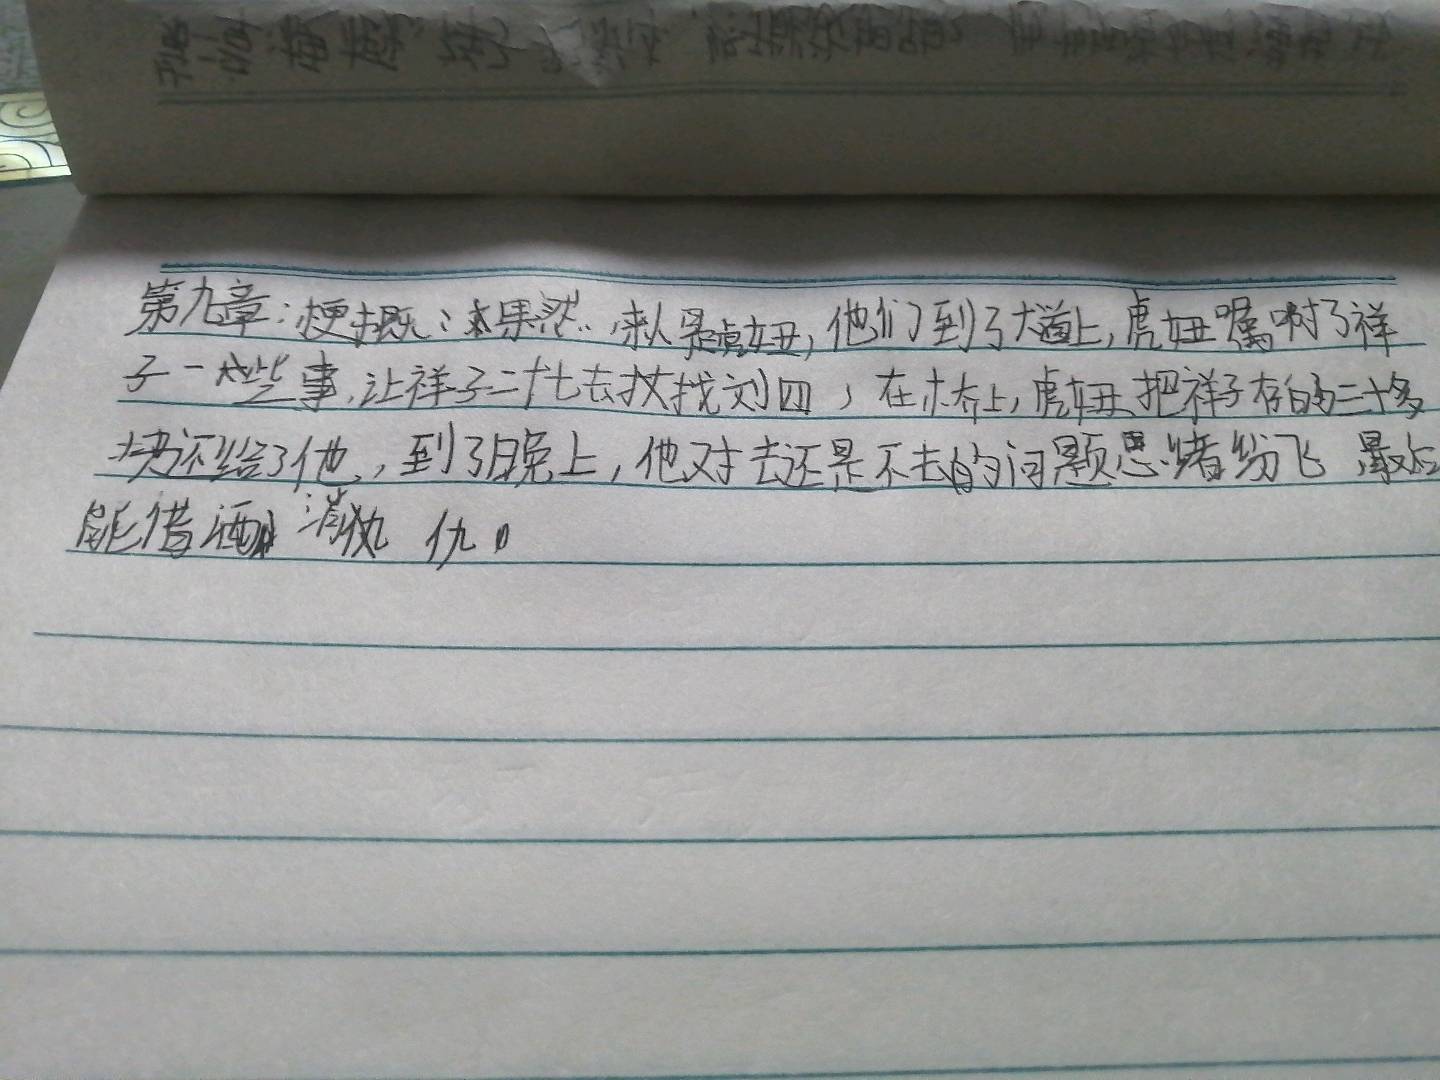 第九章:梗概:果然,来人是虎妞,他们到了大道上,虎妞嘱咐了祥
子一些事,让祥子二十七去找刘四,在桥上,虎妞把祥子存的三十多
块还给了他,到了晚上,他对去还是不去的问题思绪纷飞 最后
能借酒消仇。